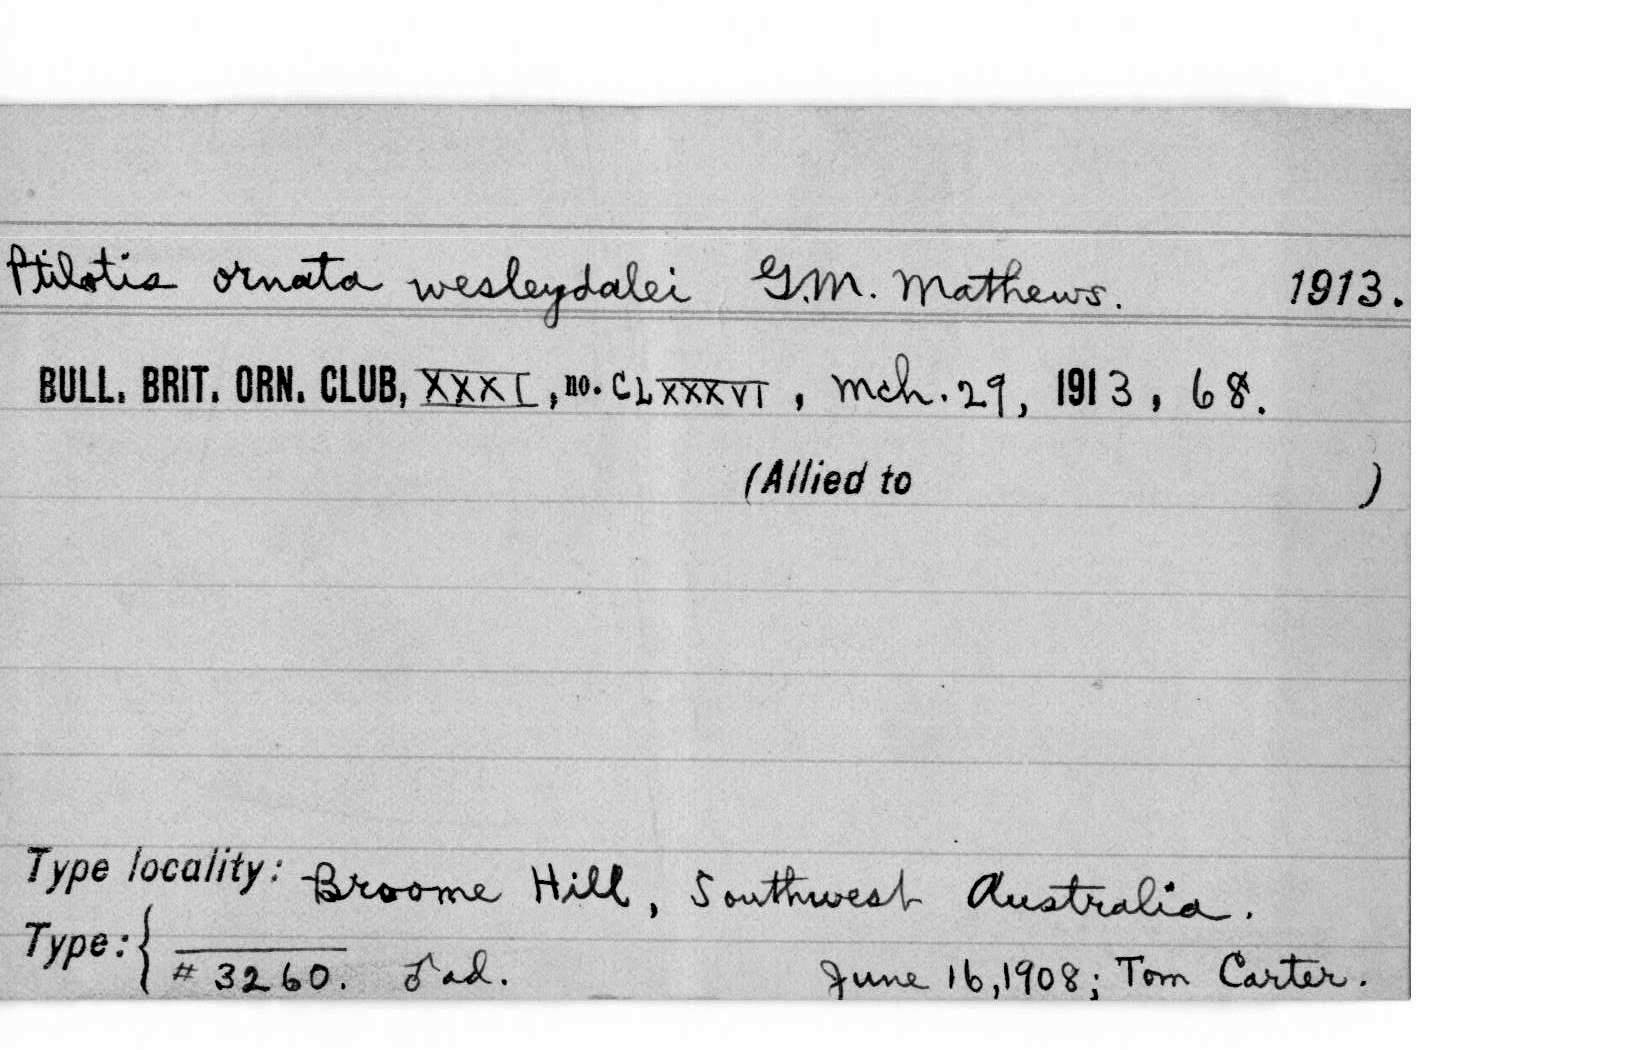 Ptilotis ornata wesleydalei G.M. Mathews. 1913.
BULL. BRIT. ORN. CLUB, XXXI, no. CLXXXVI, Mch. 29, 1913, 68.
(Allied to )
Type locality: Broome Hill, Southwest Australia.
Type: { # 3260. ♂ ad. June 16, 1908; Tom Carter.